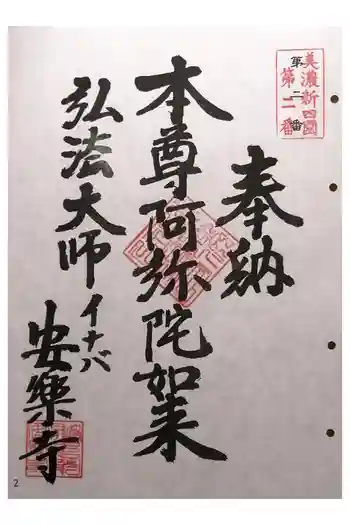 美濃新四國
第二番
第二番
奉納
本尊阿弥陀如来
弘法大師
イナバ
安樂寺
2